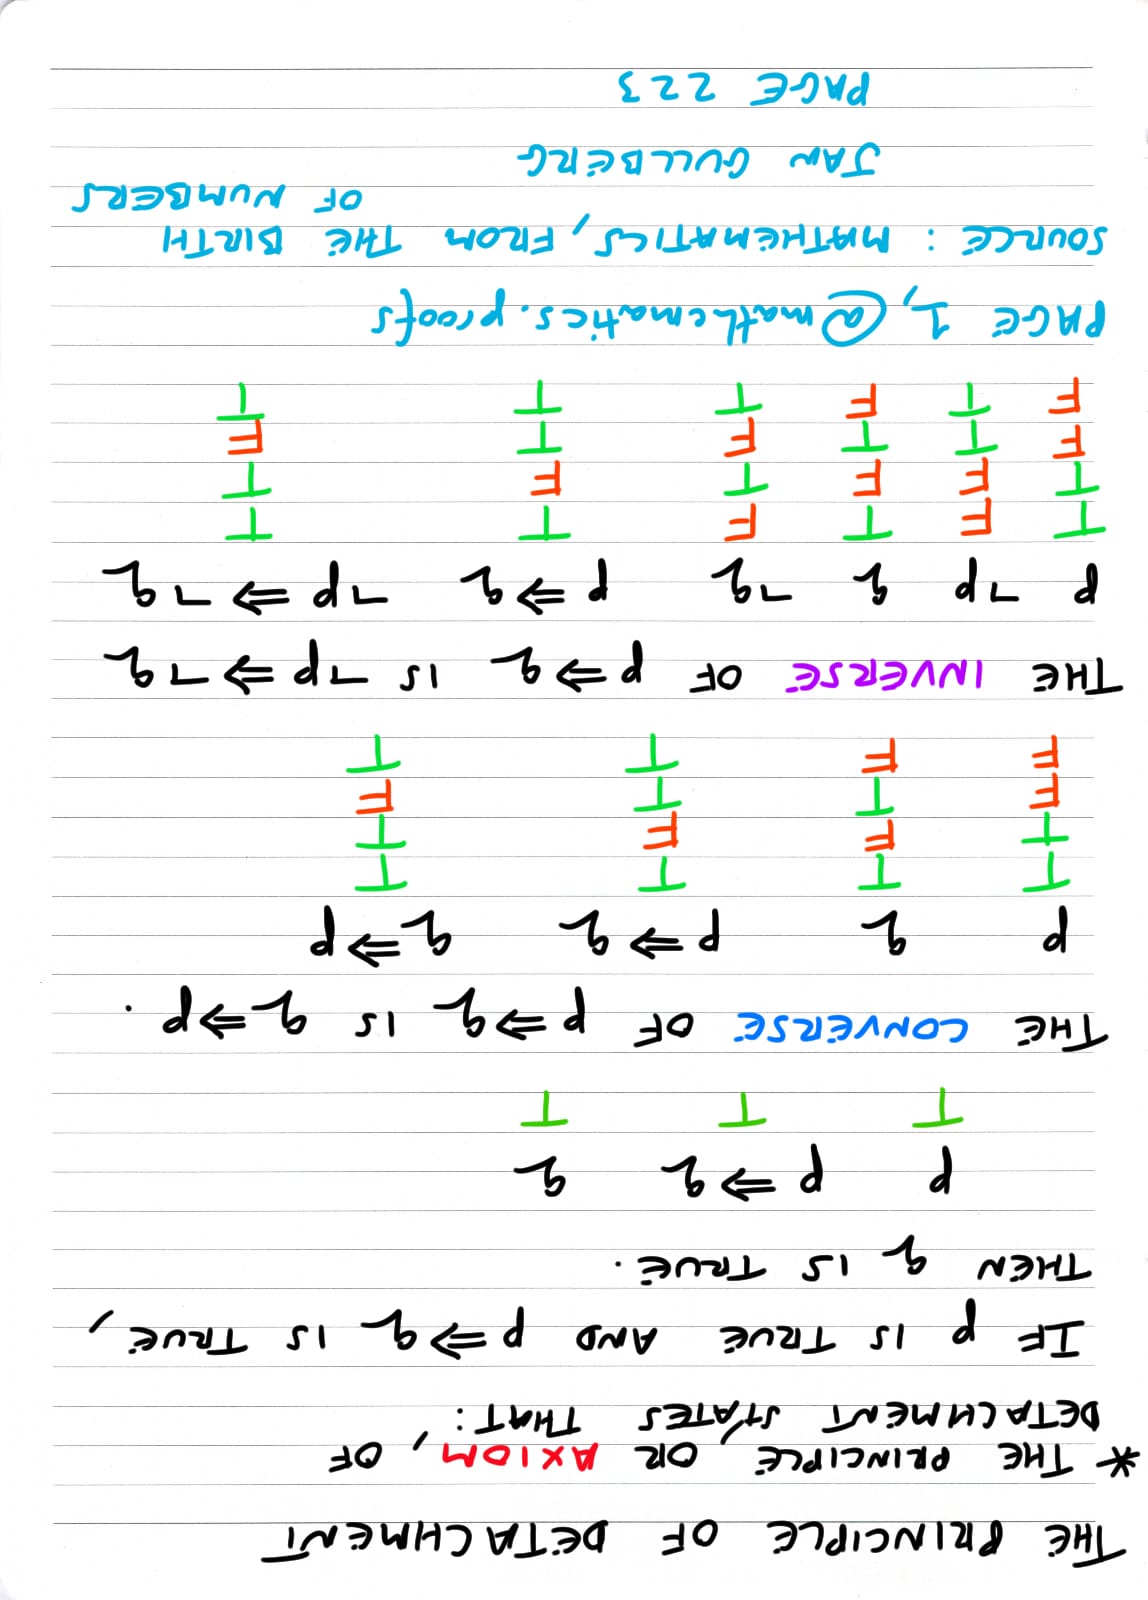 THE PRINCIPLE OF DETACHMENT
* THE PRINCIPLE, OR AXIOM, OF
DETACHMENT STATES THAT:
IF p IS TRUE AND p ⇒ q IS TRUE,
THEN q IS TRUE.
p p ⇒ q q
T T T
THE CONVERSE OF p ⇒ q IS q ⇒ p.
p q p ⇒ q q ⇒ p
T T T T
T F F T
F T T F
F F T T
THE INVERSE OF p ⇒ q IS ¬p ⇒ ¬q
p ¬p q ¬q p ⇒ q ¬p ⇒ ¬q
T F T F T T
T F F T F T
F T T F T F
F T F T T T
PAGE 1, @mathematics.proofs
SOURCE: MATHEMATICS, FROM THE BIRTH
OF NUMBERS
JAN GULLBERG
PAGE 223